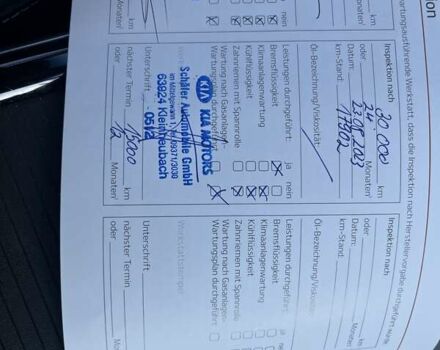 wartungausführende Werkstatt, dass die Inspektion nach Herstellervorgabe durchgeführt wurde.
km
Monaten
nein
Inspektion nach 30 000 km
oder 24 Monaten
Datum: 23.08.2023
km-Stand: 17902
Öl-Bezeichnung/Viskosität:
Leistungen durchgeführt: ja nein
Bremsflüssigkeit
Klimaanlagenwartung
Kühlflüssigkeit
Zahnriemen mit Spannrolle
Wartung nach Gasanlagen-
Wartungsplan durchgeführt
KIA KIA MOTORS
Schäfer Automobile GmbH
63924 Kleinheubach
0512
Unterschrift
nächster Termin 15000 km
oder 12 Monaten
Inspektion nach km
oder Monaten
Datum:
km-Stand:
Öl-Bezeichnung/Viskosität:
Leistungen durchgeführt: ja
Bremsflüssigkeit
Klimaanlagenwartung
Kühlflüssigkeit
Zahnriemen mit Spannrolle
Wartung nach Gasanlagen-
Wartungsplan durchgeführt
Werkstattstempel
Unterschrift
nächster Termin km
oder Monaten